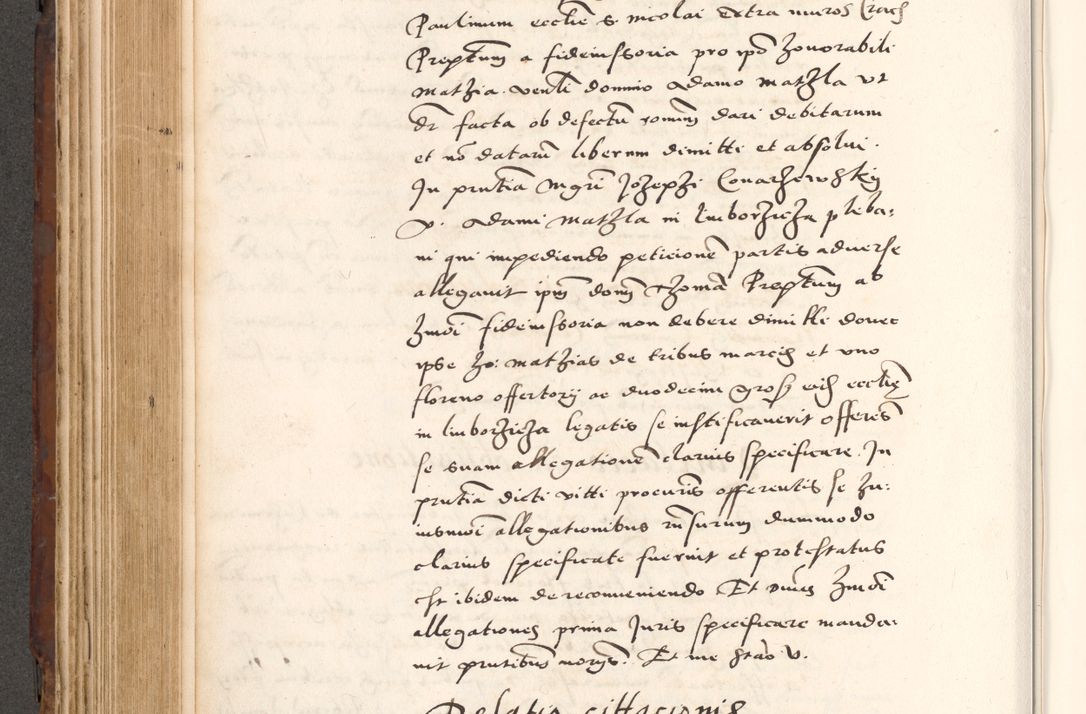 Paulinum ecclie S. Nicolai extra muros Crach
Preptum a fideiussoria pro ipo honorabili
Mathia venli domino Adamo Mathla ut
dr facta ob defectu romum dari debitarum
et no dataru liberum dimitti et absolui.
In pntia mgri Jozephi Conarzewskj
v. Adami Mathla in limborzicza pleba:
ni qui impediendo peticione partis aduerse
allegauit ipm dom Thoma Preptum ab
hmoi fideiussoria non debere dimitti donec
ipse ho: Mathias de tribus marcis et uno
floreno offertorij ac duodecim gros eid ecclie
in limborzicza legatis se iustificauerit offeres
se suam allegatione clarius specificare. In
pntia dicti vitti procuris offerentis se hu:
iusmoi allegationibus rnsurum dummodo
clarius specificate fuerint et protestatus
est ibidem de reconueniendo Et dnus hmoi
allegationes prima Juris specificare manda:
uit prutibus nomis. Et me stan v.
Relatio cittacionis